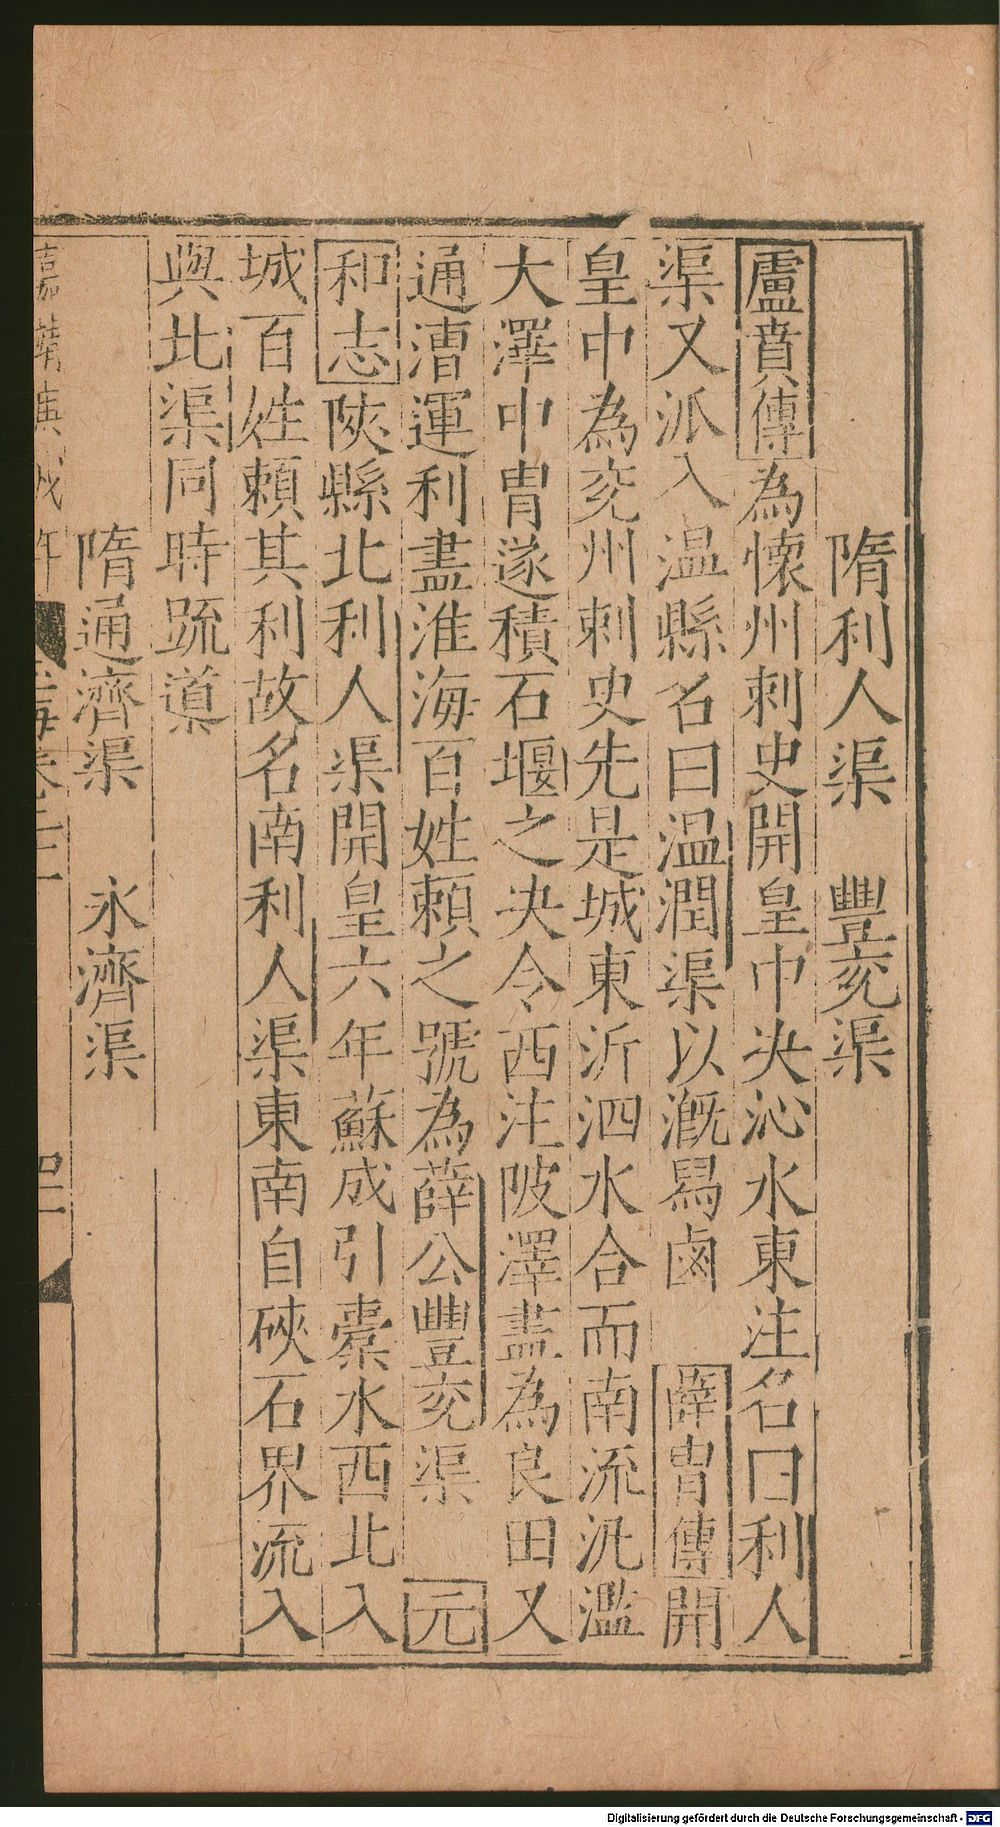 隋利人渠　豐兖渠
盧賁傳為懷州刺史開皇中决沁水東注名曰利人
渠又派入温縣名曰温潤渠以溉舄鹵　薛胄傳開
皇中為兖州刺史先是城東沂泗水合而南流汎濫
大澤中胄遂積石堰之决令西注陂澤盡為良田又
通漕運利盡淮海百姓賴之號為薛公豐兖渠　元
和志陜縣北利人渠開皇六年蘇威引橐水西北入
城百姓賴其利故名南利人渠東南自硤石界流入
與北渠同時疏導
隋通濟渠　永濟渠
Digitalisierung gefördert durch die Deutsche Forschungsgemeinschaft - DFG